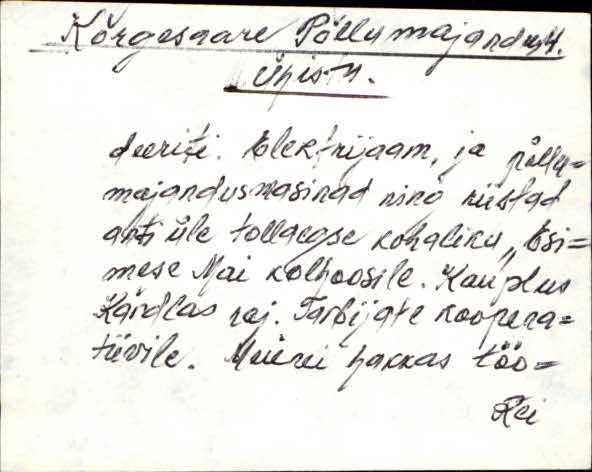 Kõrgesaare Põllumajandusl.
Ühistu.
deeriti. Elektrijaam, ja põllu=
majandusmasinad ning riistad
anti üle tollaegse kohaliku „Esi=
mese Mai kolhoosile. Kauplus
Kärdlas raj. Tarbijate koopera=
tiivile. Meierei hakkas töö=